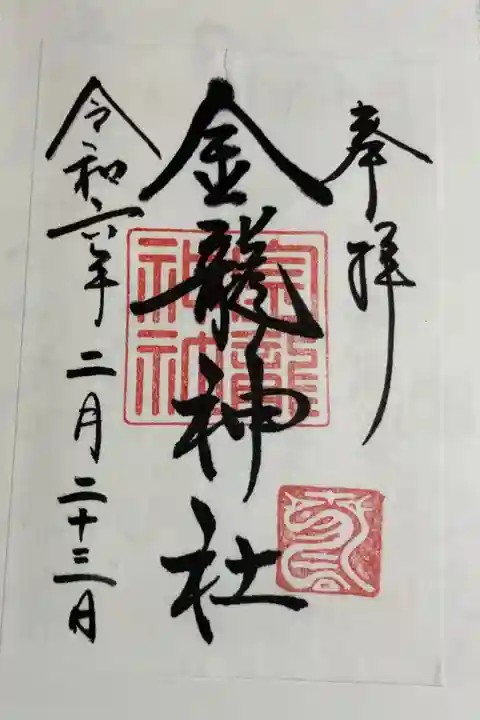 奉拝
金龍神社
金龍神社
令和六年二月二十三日